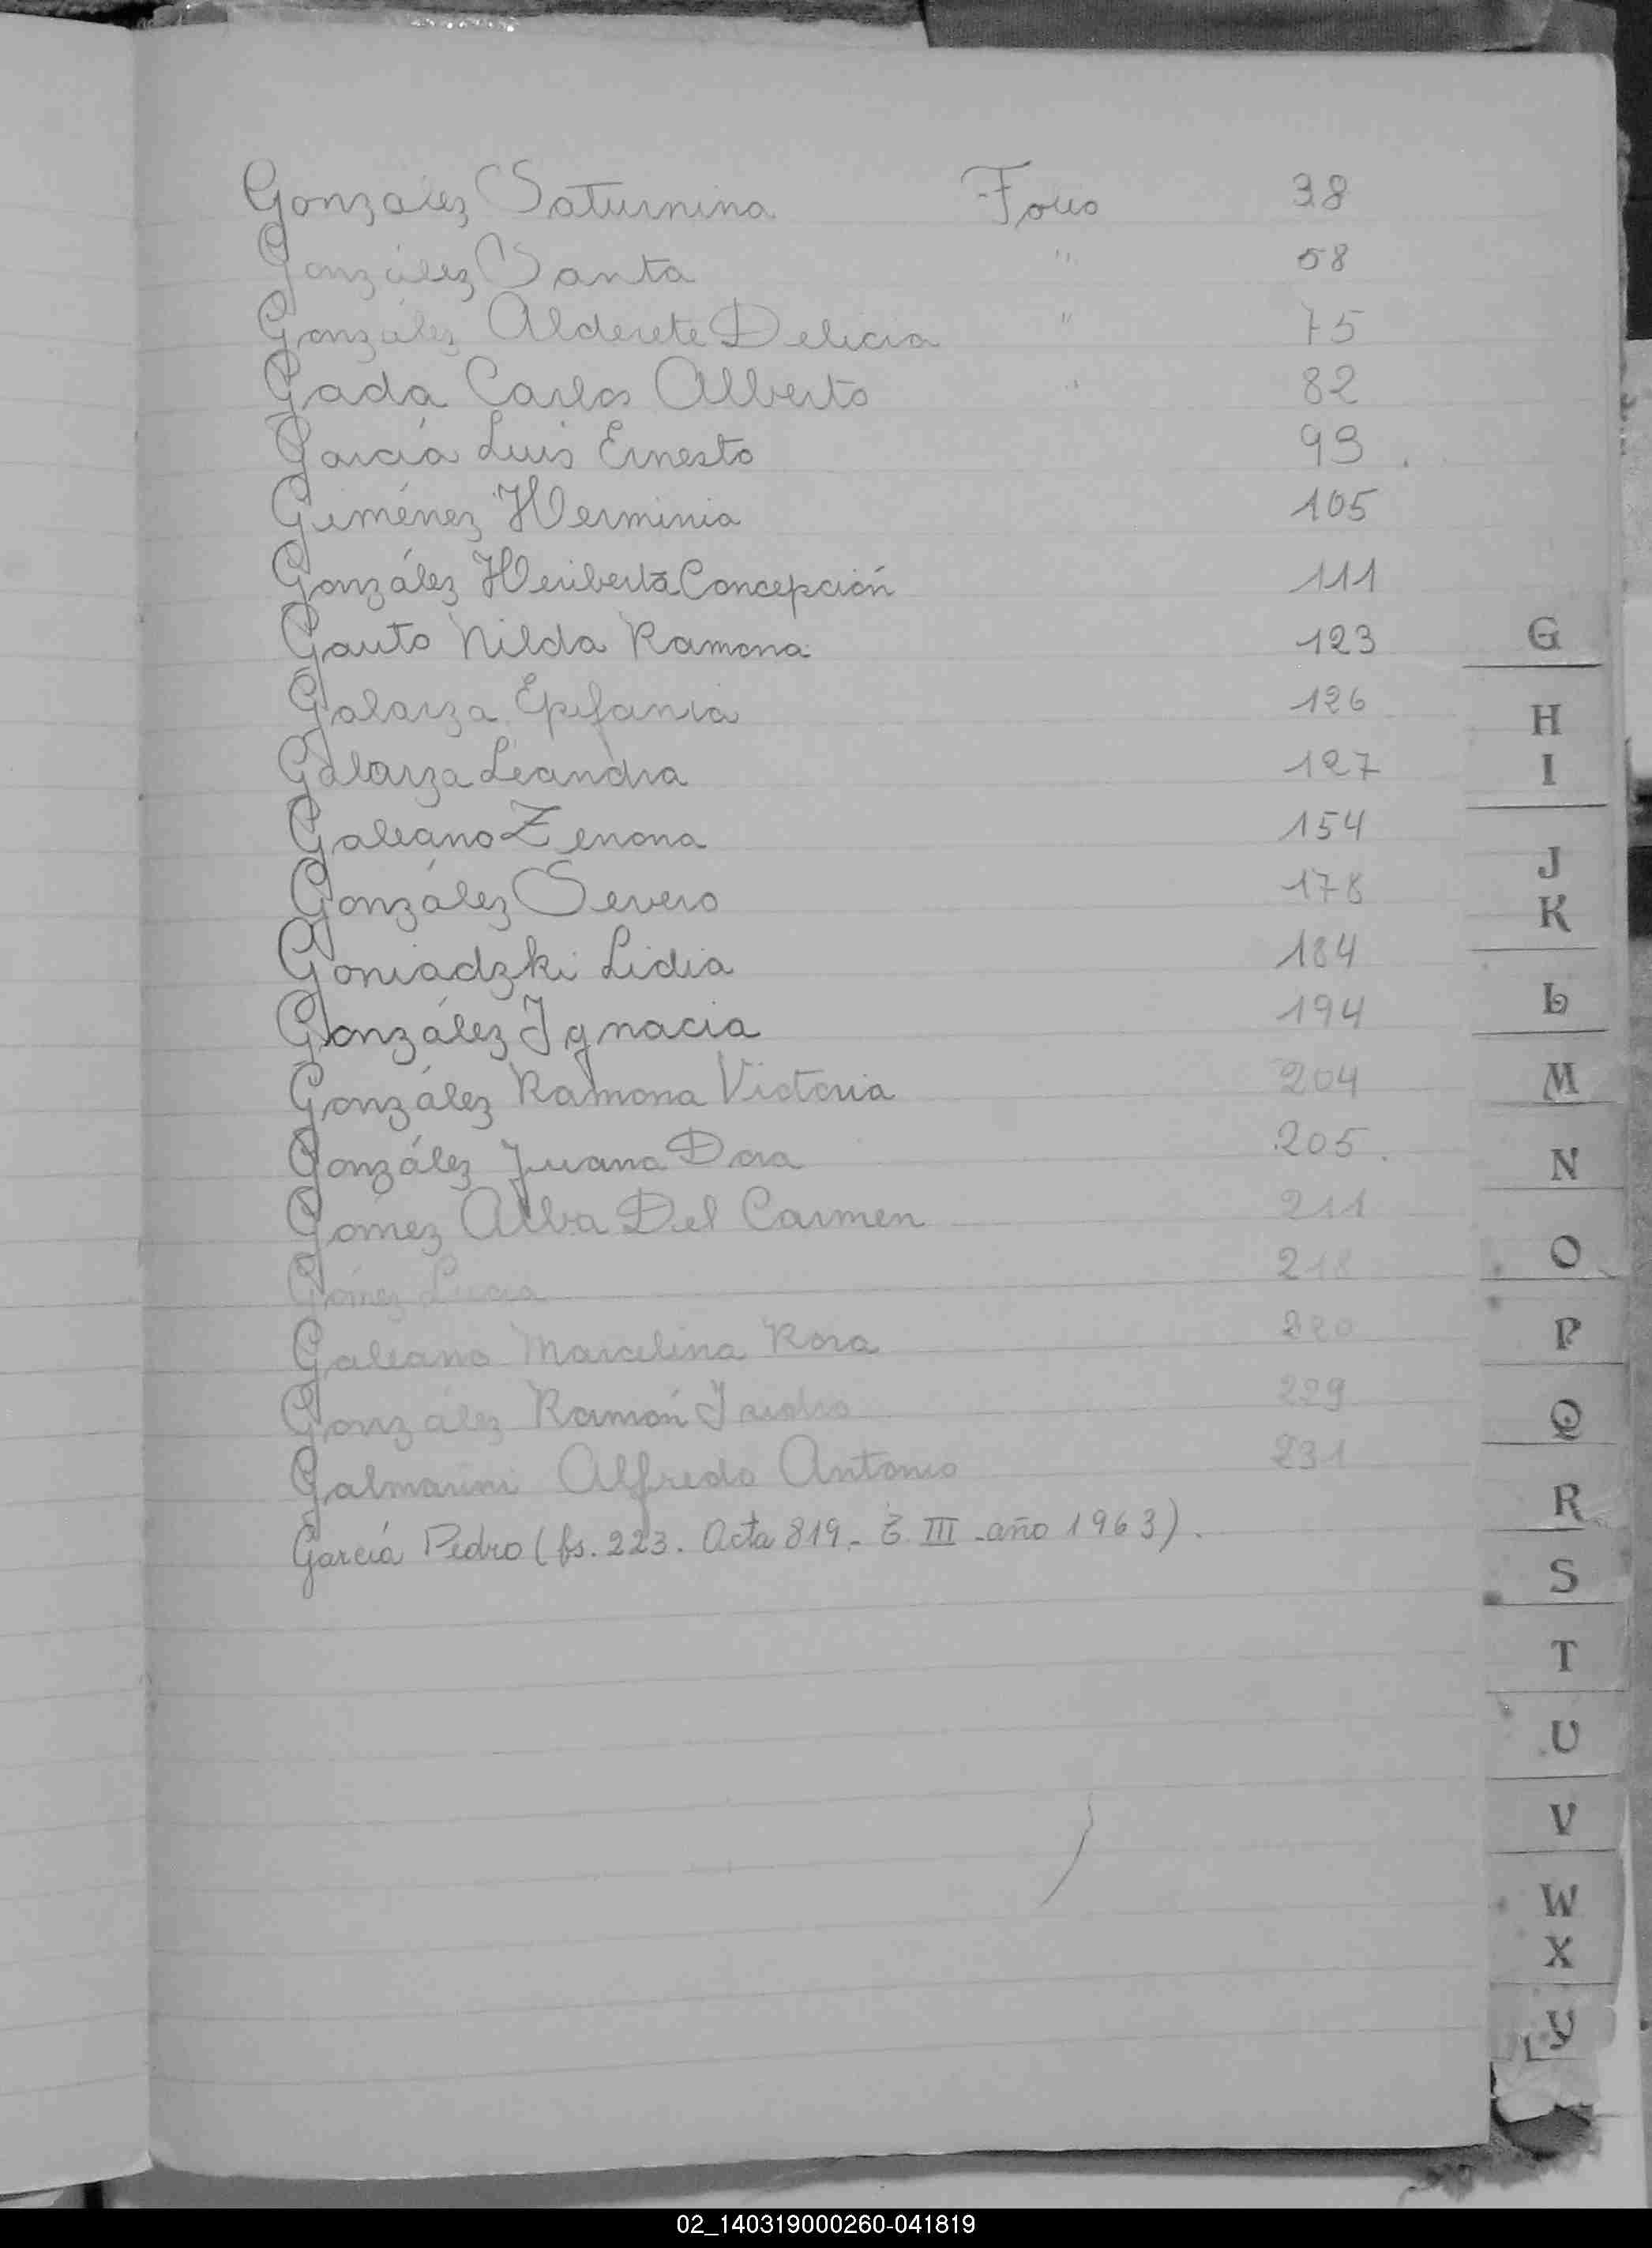 González Saturnina Folio 38
González Santa " 58
González Alderete Delicia " 75
Gada Carlos Alberto " 82
García Luis Ernesto 93
Giménez Herminia 105
González Heriberta Concepción 111
Gauto Nilda Ramona 123
Galarza Epifania 126
Galarza Leandra 127
Galeano Zenona 154
González Severo 178
Goniadzki Lidia 184
González Ignacia 194
González Ramona Victoria 204
González Juana Dora 205
Gómez Alba Del Carmen 211
Gómez Lucia 218
Galeano Marcelina Rosa 220
González Ramón Isidro 229
Galmarini Alfredo Antonio 231
García Pedro (fs. 223. Acta 819. T. III - año 1963).
G
H
I
J
K
L
M
N
O
P
Q
R
S
T
U
V
W
X
Y
02_140319000260-041819